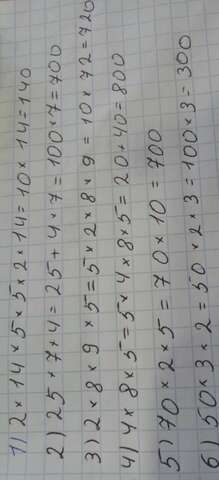 1) 2×14×5×5×2×14=10×14=140
2) 25×7×4=25+4×7=100×7=700
3) 2×8×9×5=5×2×8×9=10×72=720
4) 4×8×5=5×4×8×5=20+40=800
5) 70×2×5=70×10=700
6) 50×3×2=50×2×3=100×3=300